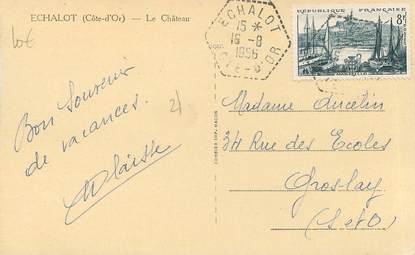 ECHALOT (Côte-d'Or) — Le Château
10€
ECHALOT
15 *
16-8
1956
COTE-D'OR
RÉPUBLIQUE FRANÇAISE
8f
Bon Souvenir
de vacances.
2/
Madame Ancelin
34 Rue des Ecoles
Groslay
(S et O)